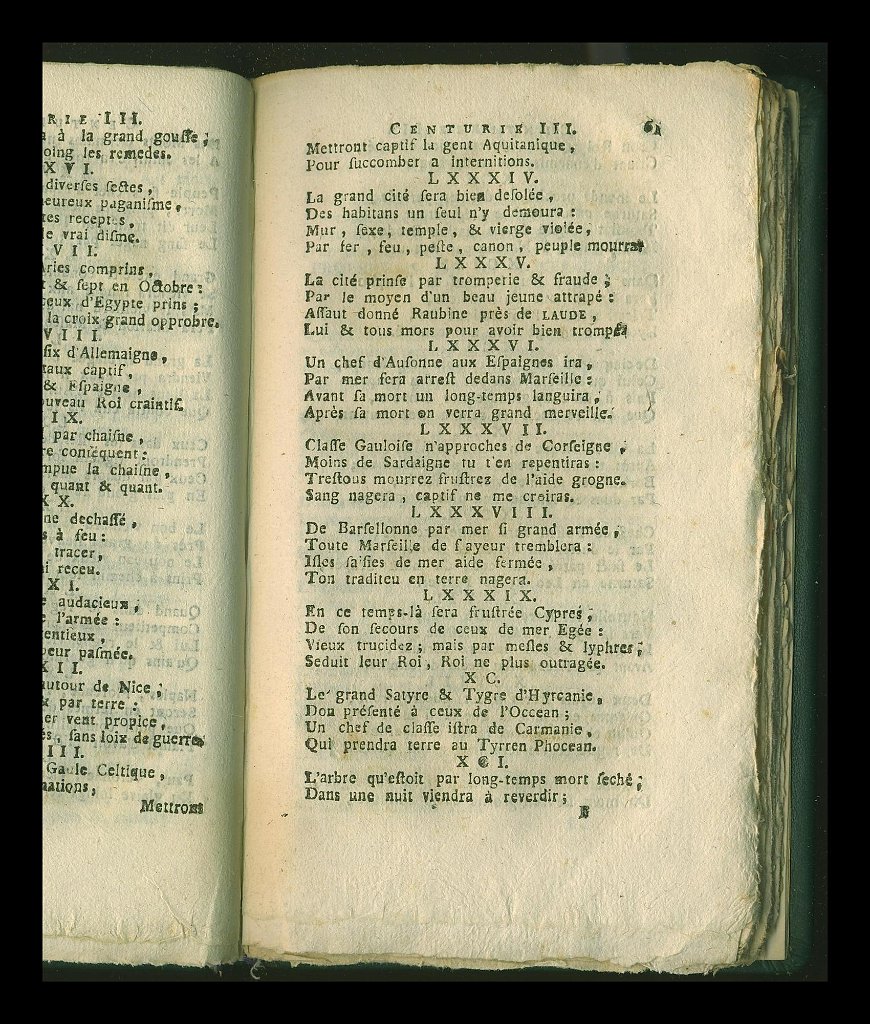 RIE III.
à la grand gousse;
oing les remedes.
XVI.
diverses sectes,
eureux paganisme,
tes receptes,
le vrai disme.
VII.
Aries comprins,
& sept en Octobre:
ceux d'Egypte prins;
la croix grand opprobre.
VIII.
six d'Allemaigne,
taux captif,
& Espaigne,
ouveau Roi craintif.
IX.
par chaisne,
re conséquent:
mpue sa chaisne,
quant & quant.
XX.
ne dechassé,
s à feu:
tracer,
i receu.
XI.
audacieux;
e l'armée:
entieux,
peur pasmée.
XII.
autour de Nice;
x par terre:
er vent propice,
es, sans loix de guerres
III.
Gaule Celtique,
nations,
Mettront
CENTURIE III. 61
Mettront captif la gent Aquitanique,
Pour succomber a internitions.
LXXXIV.
La grand cité sera bien desolée,
Des habitans un seul n'y demoura:
Mur, sexe, temple, & vierge violée,
Par fer, feu, peste, canon, peuple mourra
LXXXV.
La cité prinse par tromperie & fraude;
Par le moyen d'un beau jeune attrapé:
Assaut donné Raubine près de LAUDE,
Lui & tous mors pour avoir bien trompé
LXXXVI.
Un chef d'Ausonne aux Espaignes ira,
Par mer fera arrest dedans Marseille:
Avant sa mort un long-temps languira,
Après sa mort on verra grand merveille.
LXXXVII.
Classe Gauloise n'approches de Corseigne,
Moins de Sardaigne tu t'en repentiras:
Trestous mourrez frustrez de l'aide grogne.
Sang nagera, captif ne me croiras.
LXXXVIII.
De Barsellonne par mer si grand armée,
Toute Marseille de frayeur tremblera:
Isles saisies de mer aide fermée,
Ton traditeu en terre nagera.
LXXXIX.
En ce temps-là sera frustrée Cypres,
De son secours de ceux de mer Egée:
Vieux trucidez; mais par mesles & lyphres;
Seduit leur Roi, Roi ne plus outragée.
XC.
Le grand Satyre & Tygre d'Hyrcanie,
Don présenté à ceux de l'Occean;
Un chef de classe istra de Carmanie,
Qui prendra terre au Tyrren Phocean.
XCI.
L'arbre qu'estoit par long-temps mort seché;
Dans une nuit viendra à reverdir;